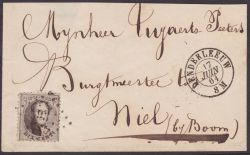 Mynheer Tuyaerts Peeters
Burgtmeester te
Niel
(by Boom)
DENDERLEEUW
17
JUIN
8 M